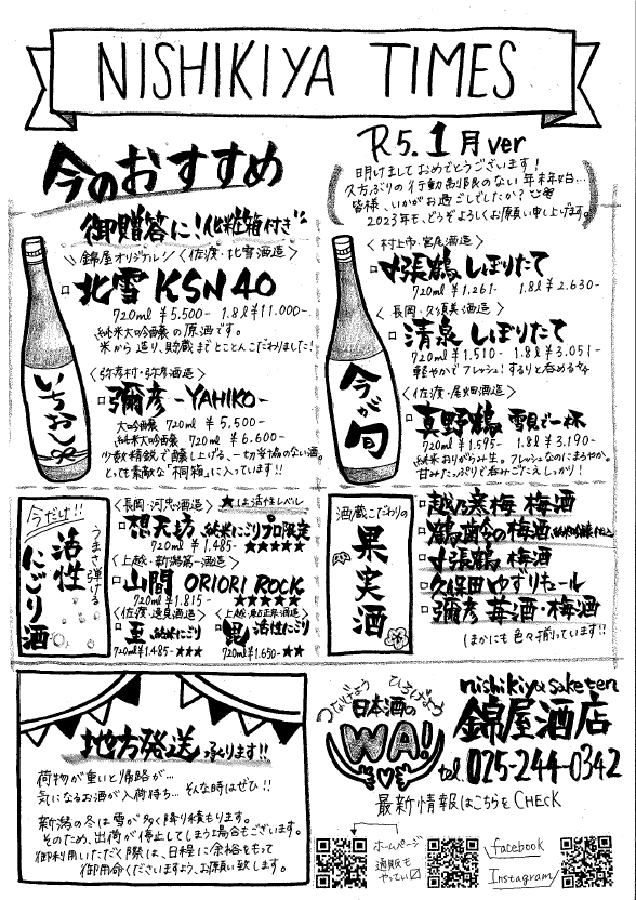 NISHIKIYA TIMES
R5.1月ver
明けましておめでとうございます!
久方ぶりの行動制限のない年末年始…
皆様、いかがお過ごしでしたか?
2023年も、どうぞよろしくお願い申し上げます。
今のおすすめ
御贈答に!化粧箱付き
錦屋オリジナル 〈佐渡・北雪酒造〉
北雪 KSN40
720ml ¥5.500- 1.8l ¥11.000-
純米大吟醸の原酒です。
米から造り、貯蔵までとことんこだわりました!
〈弥彦村・弥彦酒造〉
彌彦 -YAHIKO-
大吟醸 720ml ¥5.500-
純米大吟醸 720ml ¥6.600-
少数精鋭で醸し上げる、一切妥協のない酒。
とっても素敵な「桐箱」に入っています!!
いちおし
〈村上市・宮尾酒造〉
〆張鶴 しぼりたて
720ml ¥1.261- 1.8l ¥2.630-
〈長岡・久須美酒造〉
清泉 しぼりたて
720ml ¥1.510- 1.8l ¥3.051-
軽やかでフレッシュ!するりと呑める
〈佐渡・尾畑酒造〉
真野鶴 雪見で一杯
720ml ¥1.595- 1.8l ¥3.190-
純米おりがらみ生。フレッシュなのにまろやか。
甘みたっぷりで呑みごたえしっかり!
今が旬
今だけ!!
うまさ弾ける
活性にごり酒
〈長岡・河忠酒造〉 ★は活性レベル
想天坊 純米にごりプロ限定
720ml ¥1.485- ★★★★★
〈上越・新潟第一酒造〉
山間 ORIORI ROCK
720ml ¥1.815- ★★★★★
〈佐渡・逸見酒造〉
至 純米にごり
720ml ¥1.485- ★★★
活性にごり
720ml ¥1.650- ★★
酒蔵こだわりの
果実酒
越乃寒梅 梅酒
鶴齢の梅酒
〆張鶴 梅酒
久保田 ゆずリキュール
彌彦 苺酒・梅酒
(ほかにも色々揃っています!!
地方発送 承ります!!
荷物が重いと帰路が…
気になるお酒が入荷待ち… そんな時はぜひ!!
新潟の冬は雪が多く降り積もります。
そのため、出荷が停止してしまう場合もございます。
御利用いただく際は、日程に余裕をもって
御用命くださいますよう、お願い致します。
つなげよう ひろげよう
日本酒の
WA!
nishikiya saketen
錦屋酒店
tel.025-244-0342
最新情報はこちらをCHECK
ホームページ
通販も
やってい〼
facebook
Instagram